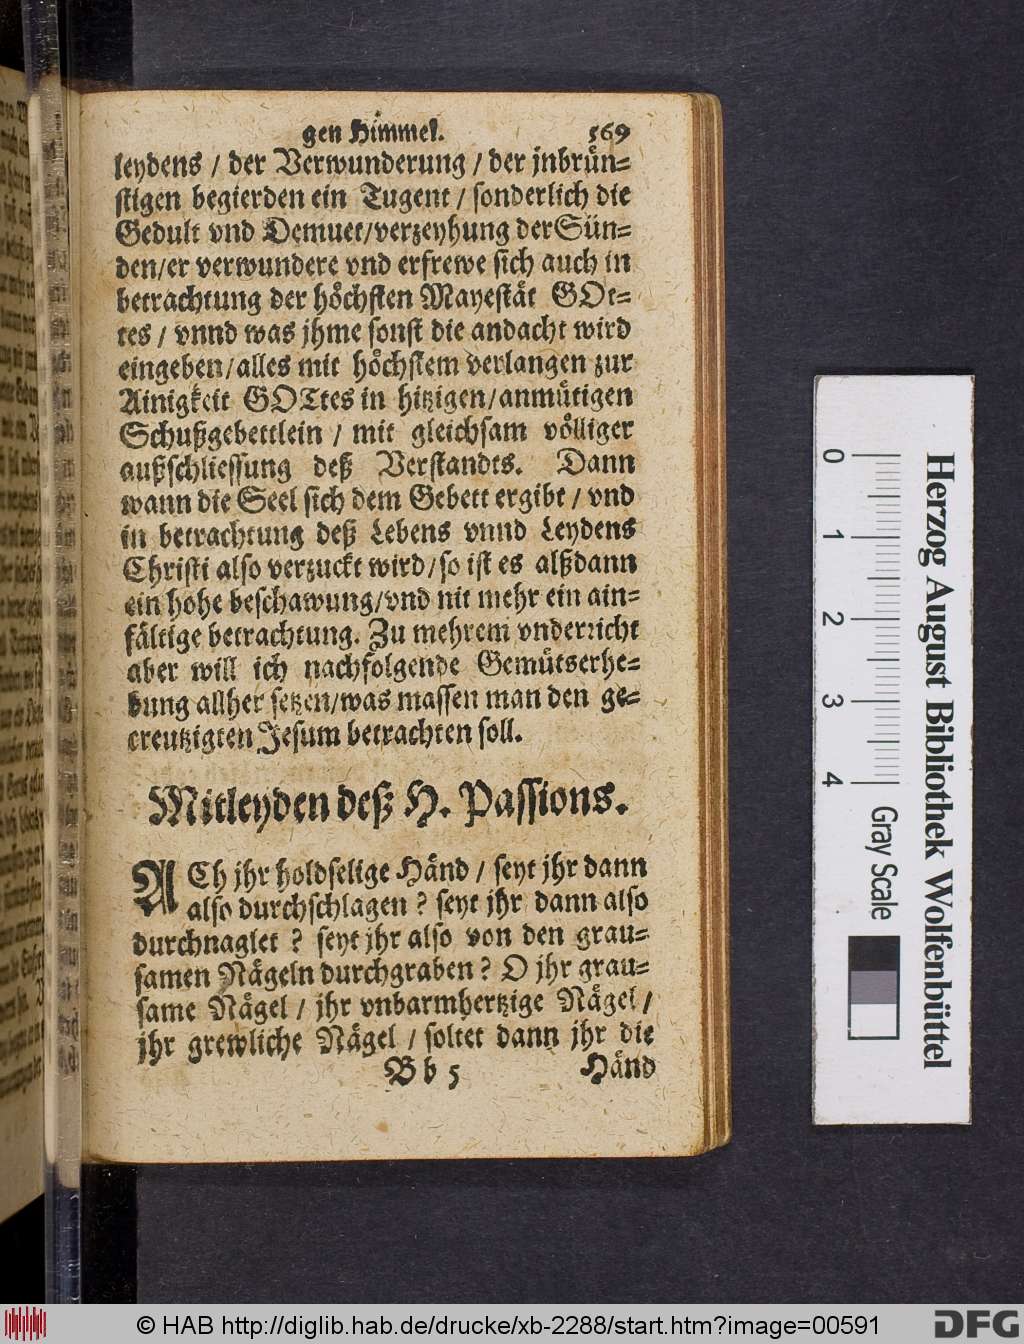 gen Himmel. 569
leydens / der Verwunderung / der jnbrün=
stigen begierden ein Tugent / sonderlich die
Gedult vnd Demuet/verzeyhung der Sün=
den/er verwundere vnd erfrewe sich auch in
betrachtung der höchsten Mayestät GOt=
tes / vnnd was jhme sonst die andacht wird
eingeben/alles mit höchstem verlangen zur
Ainigkeit GOTtes in hitzigen/anmütigen
Schußgebettlein / mit gleichsam völliger
außschliessung deß Verstandts. Dann
wann die Seel sich dem Gebett ergibt / vnd
in betrachtung deß Lebens vnnd Leydens
Christi also verzuckt wird/so ist es alßdann
ein hohe beschawung/vnd nit mehr ein ain=
fältige betrachtung. Zu mehrem vnderricht
aber will ich nachfolgende Gemütserhe=
bung allher setzen/was massen man den ge=
creutzigten Jesum betrachten soll.
Mitleyden deß H. Passions.
ACh jhr holdselige Händ / seyt jhr dann
also durchschlagen ? seyt jhr dann also
durchnaglet ? seyt jhr also von den grau=
samen Nägeln durchgraben ? O jhr grau=
same Nägel / jhr vnbarmhertzige Nägel /
jhr grewliche Nägel / soltet dann jhr die
B b 5 Händ
0 1 2 3 4
Gray Scale
Herzog August Bibliothek Wolfenbüttel
© HAB http://diglib.hab.de/drucke/xb-2288/start.htm?image=00591
DFG